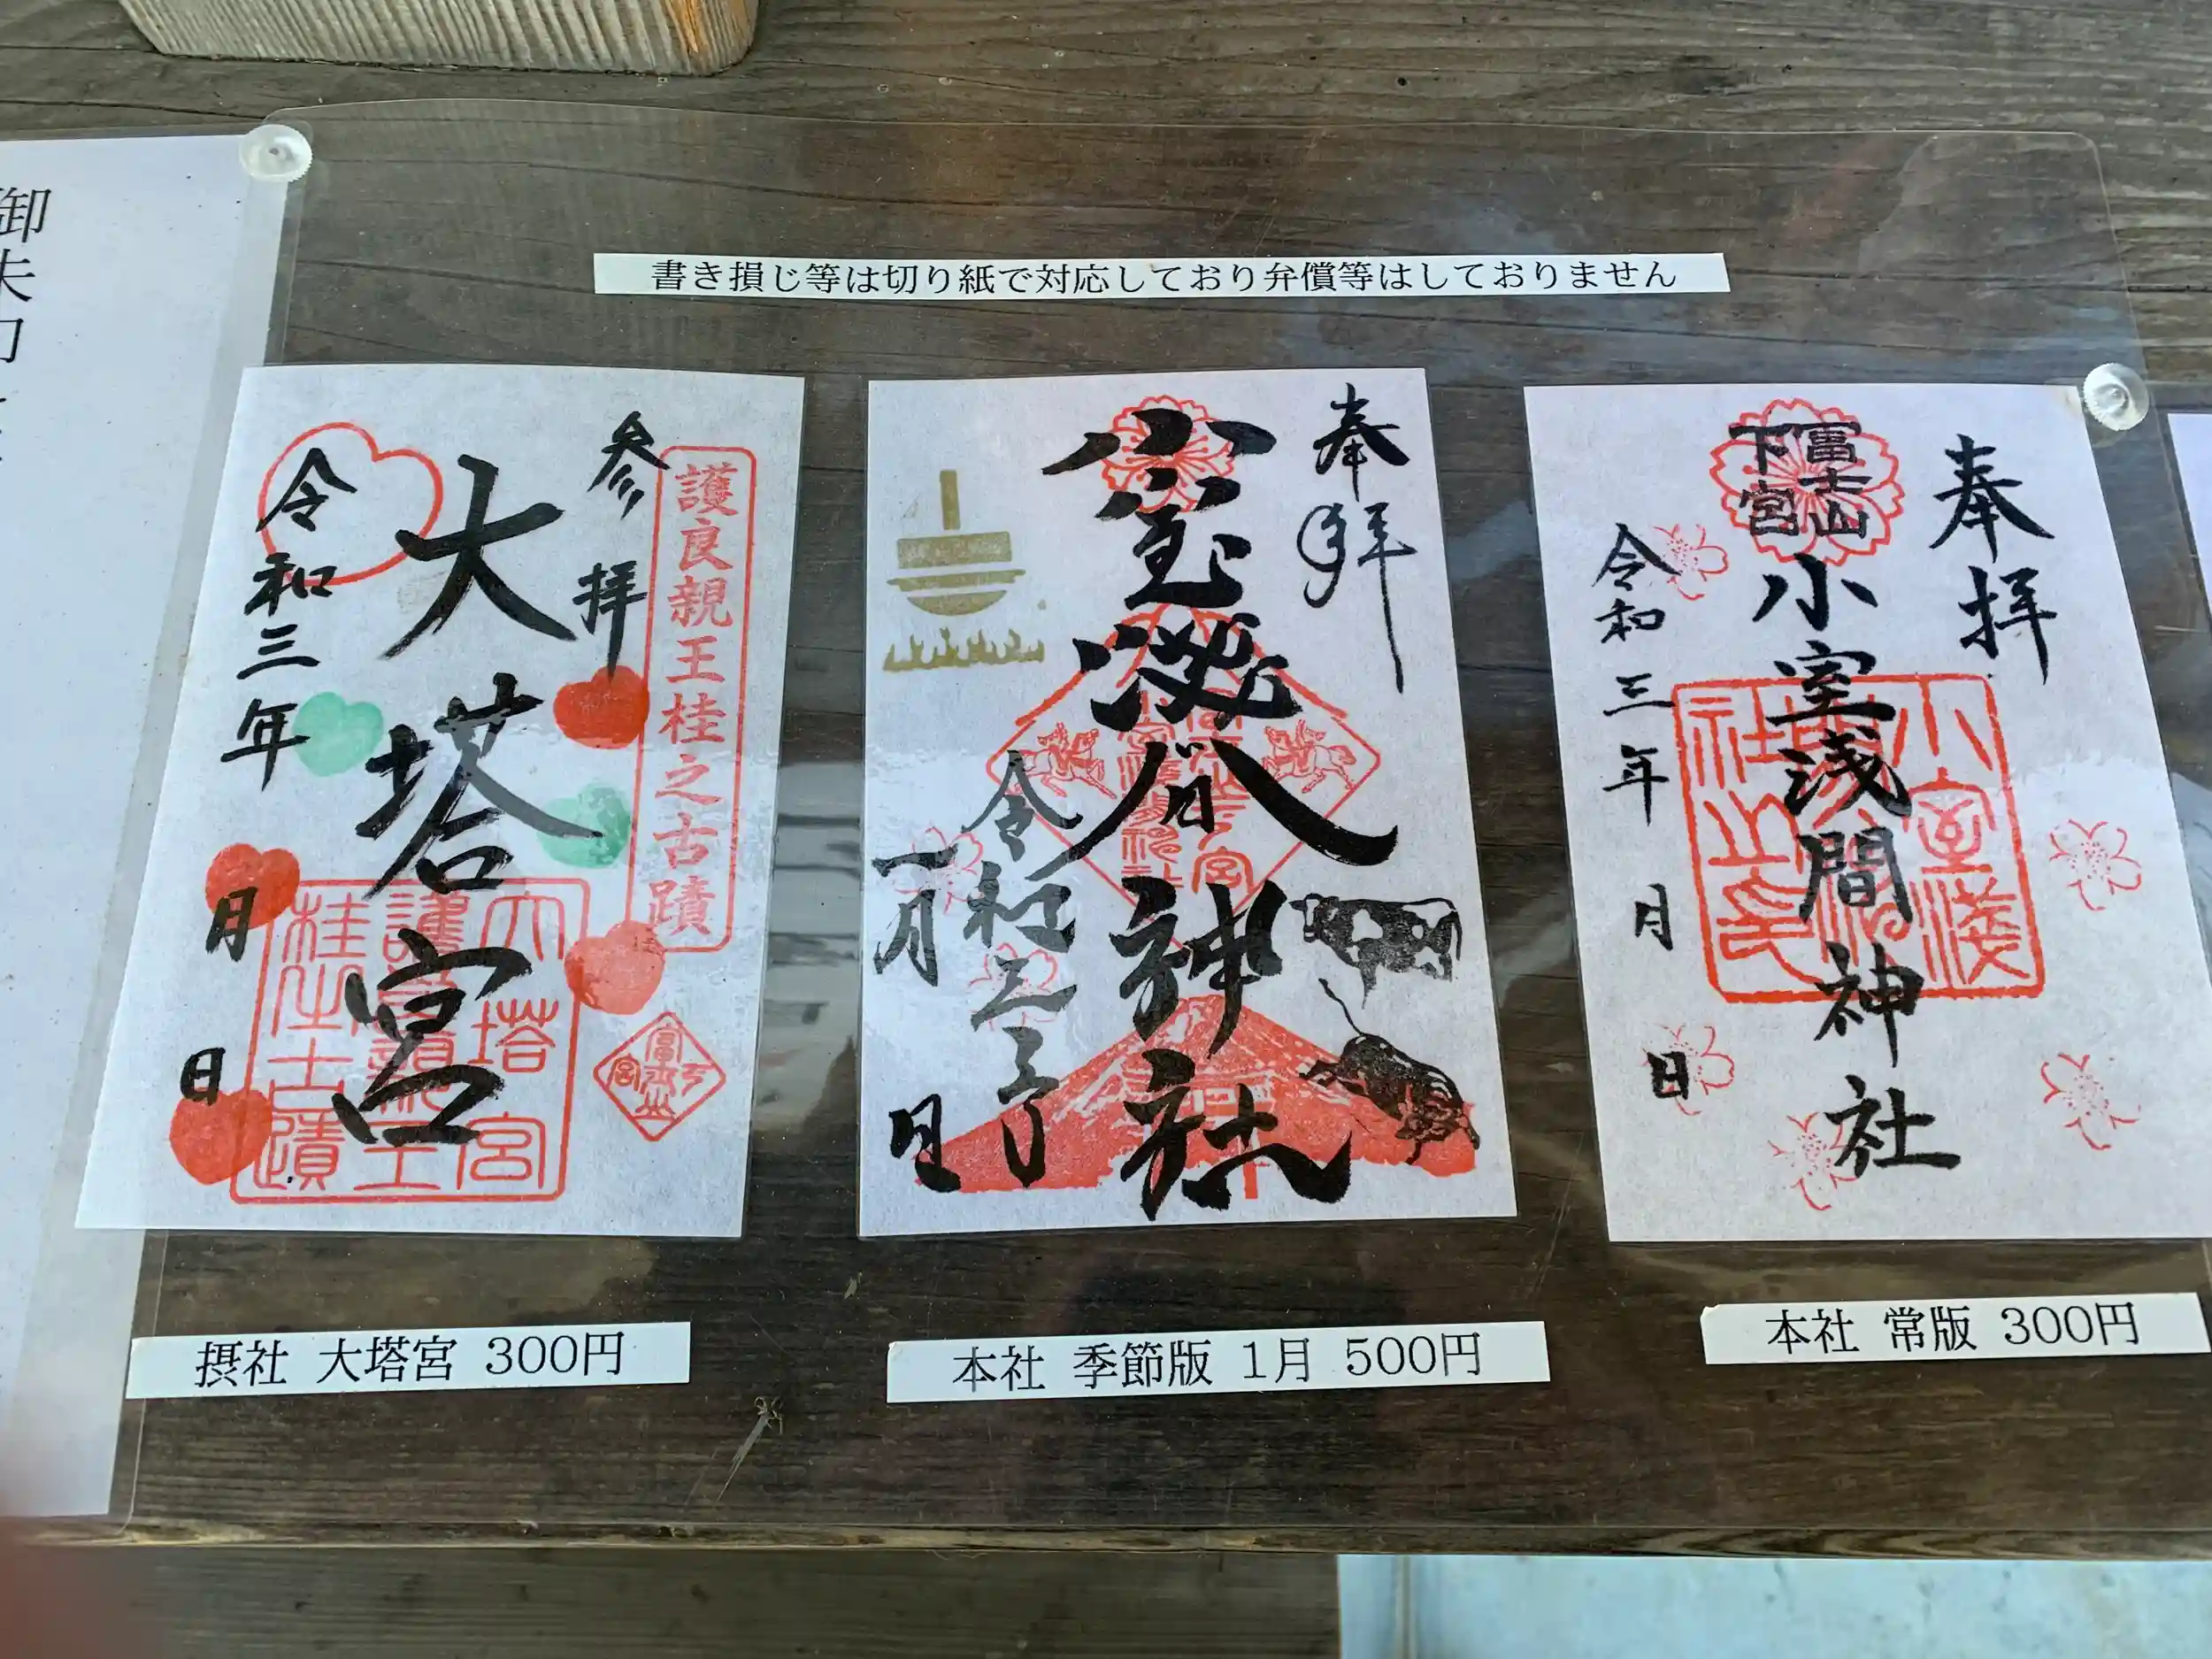 書き損じ等は切り紙で対応しており弁償等はしておりません
奉拝
富士山
下宮
小室浅間神社
令和三年 月 日
本社 常版 300円
奉拝
小室浅間神社
令和三年
一月 日
本社 季節版 1月 500円
護良親王桂之古蹟
参拝
大塔宮
令和三年
月 日
摂社 大塔宮 300円
御朱印